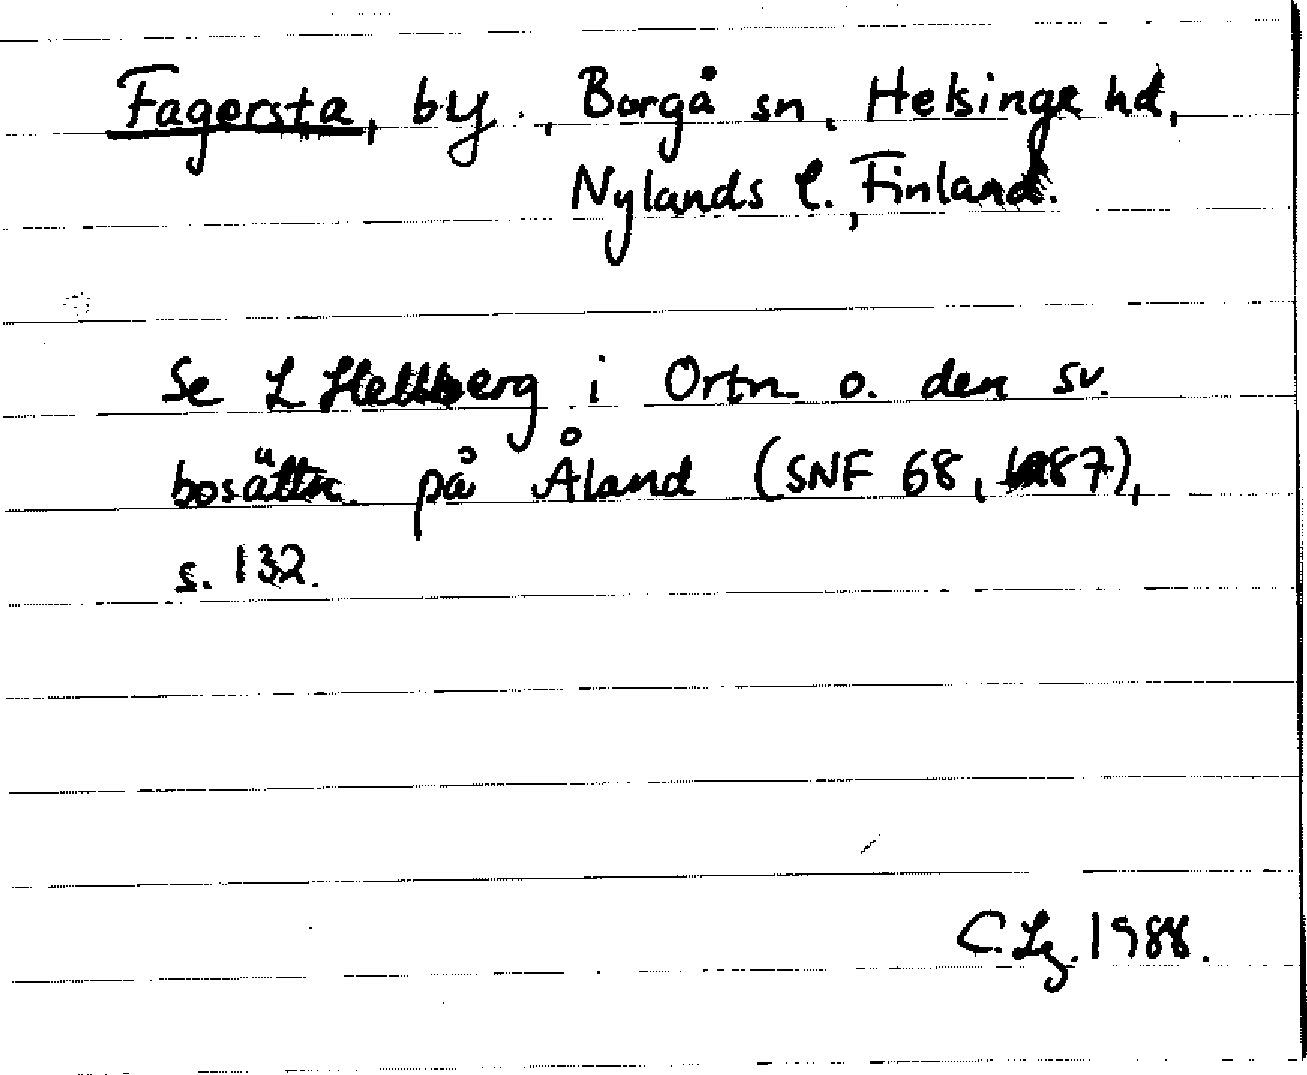 Fagersta, by., Borgå sn, Helsinge hd,
Nylands l., Finland.
Se L Hellberg i Ortn o. den sv.
bosättn. på Åland (SNF 68, 1987),
s. 132.
C. Lg. 1988.